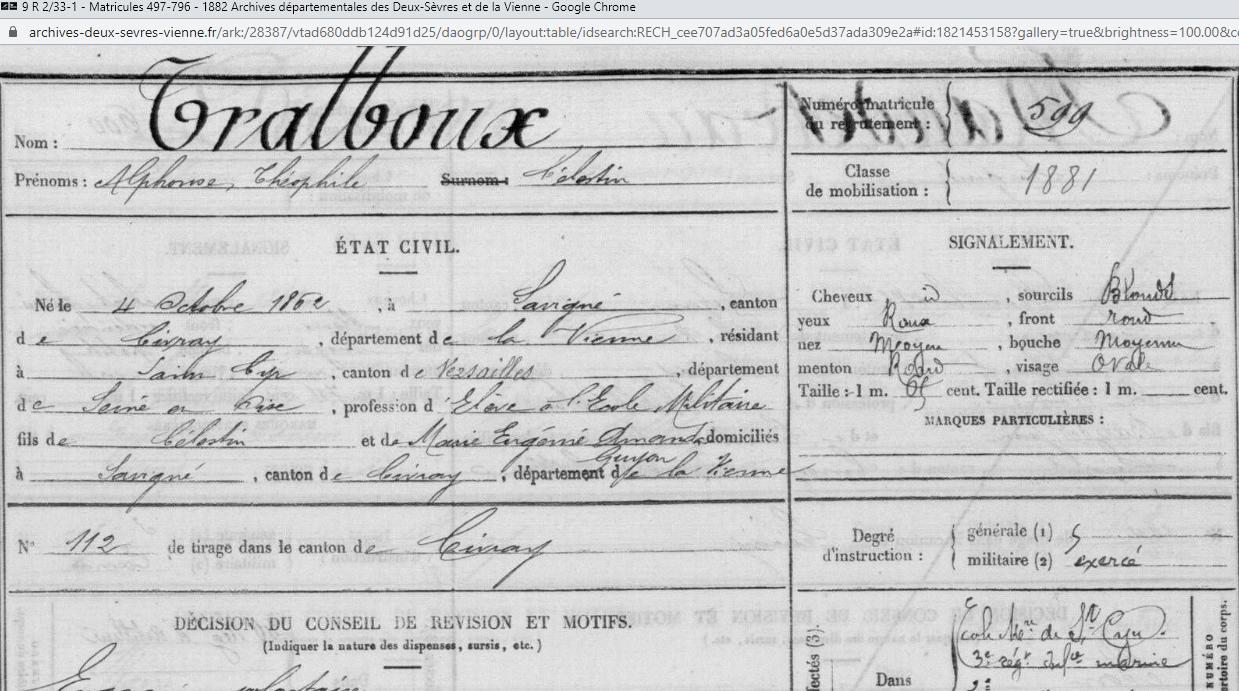 9 R 2/33-1 - Matricules 497-796 - 1882 Archives départementales des Deux-Sèvres et de la Vienne - Google Chrome
archives-deux-sevres-vienne.fr/ark:/28387/vtad680ddb124d91d25/daogrp/0/layout:table/idsearch:RECH_cee707ad3a05fed6a0e5d37ada309e2a#id:1821453158?gallery=true&brightness=100.00&c
Nom : Tralboux
Numéro matricule
du recrutement : 599
Prénoms : Alphonse, Théophile Surnom : Célestin
Classe
de mobilisation : 1881
ÉTAT CIVIL.
SIGNALEMENT.
Né le 4 Octobre 1862, à Savigné, canton
de Civray, département de la Vienne, résidant
à Saint Cyr, canton de Versailles, département
de Seine et Oise, profession d'Elève à l'Ecole Militaire
fils de Célestin et de Marie Eugénie Amanda Guyon domiciliés
à Savigné, canton de Civray, département de la Vienne
Cheveux, sourcils Blonds
yeux Roux, front rond
nez Moyen, bouche Moyenne
menton Rond, visage Ovale
Taille : 1 m. cent. Taille rectifiée : 1 m. cent.
MARQUES PARTICULIÈRES :
N° 112 de tirage dans le canton de Civray
Degré
d'instruction :
générale (1) 5
militaire (2) exercé
DÉCISION DU CONSEIL DE REVISION ET MOTIFS.
(Indiquer la nature des dispenses, sursis, etc.)
Ecole Mre de St Cyr.
3e régt infie marine
Dans
NUMÉRO